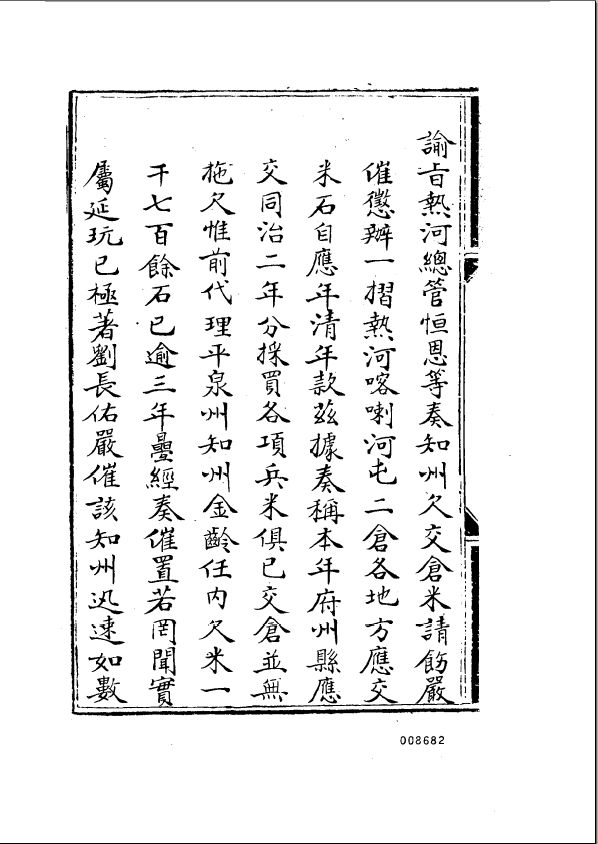 諭旨熱河總管恒恩等奏知州欠交倉米請飭嚴
催懲辦一摺熱河喀喇河屯二倉各地方應交
米石自應年清年款茲據奏稱本年府州縣應
交同治二年分採買各項兵米俱已交倉並無
拖欠惟前代理平泉州知州金齡任內欠米一
千七百餘石已逾三年疊經奏催置若罔聞實
屬延玩已極著劉長佑嚴催該知州迅速如數
008682